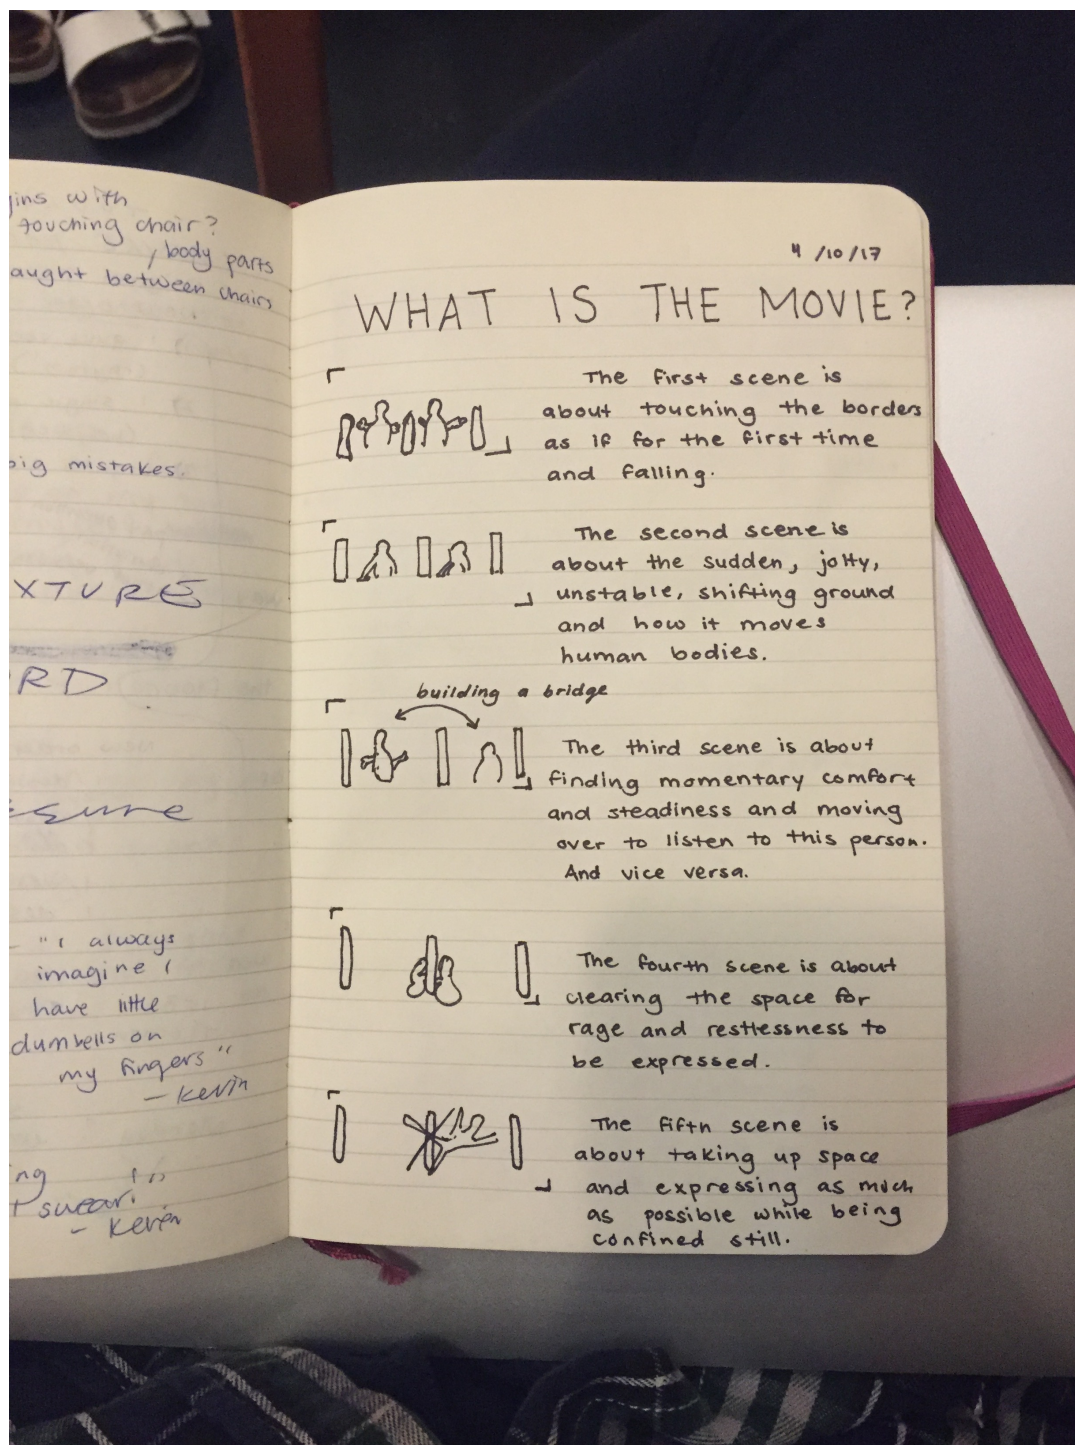 gins with
touching chair?
, body parts
aught between chairs
big mistakes.
XTURE
RD
"I always
imagine I
have little
dumbells on
my fingers"
- Kevin
ng
t swear.
- Kevin
4/10/17
WHAT IS THE MOVIE?
The first scene is
about touching the borders
as if for the first time
and falling.
The second scene is
about the sudden, jolty,
unstable, shifting ground
and how it moves
human bodies.
building a bridge
The third scene is about
finding momentary comfort
and steadiness and moving
over to listen to this person.
And vice versa.
The fourth scene is about
clearing the space for
rage and restlessness to
be expressed.
The fifth scene is
about taking up space
and expressing as much
as possible while being
confined still.